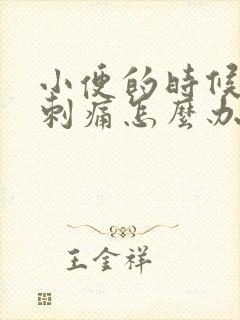 小便的時候
刺痛怎麼办
王金祥